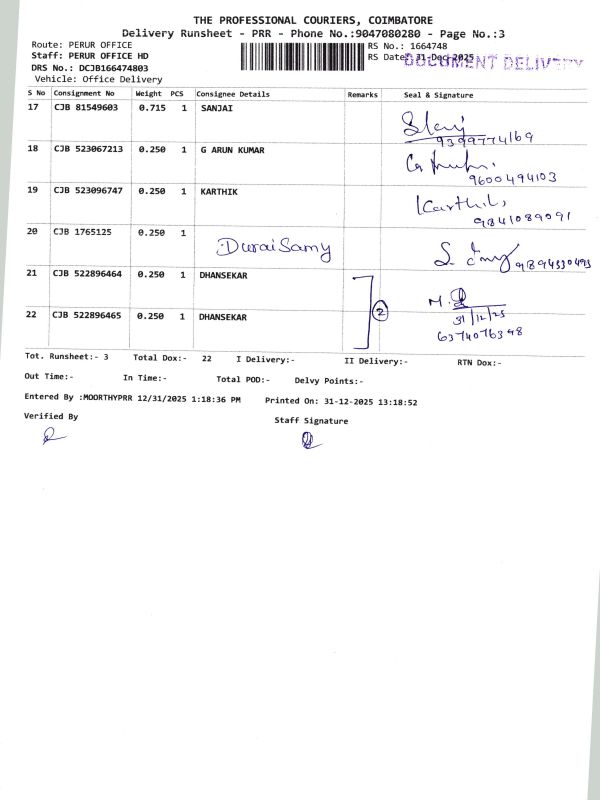 THE PROFESSIONAL COURIERS, COIMBATORE
Delivery Runsheet - PRR - Phone No.:9047080280 - Page No.:3
Route: PERUR OFFICE RS No.: 1664748
Staff: PERUR OFFICE HD RS Date: 31-Dec-2025 DOCUMENT DELIVERY
DRS No.: DCJB166474803
Vehicle: Office Delivery
S No Consignment No Weight PCS Consignee Details Remarks Seal & Signature
17 CJB 81549603 0.715 1 SANJAI
9399774169
18 CJB 523067213 0.250 1 G ARUN KUMAR
9600494103
19 CJB 523096747 0.250 1 KARTHIK Karthik,
9841089091
20 CJB 1765125 0.250 1 DuraiSamy
9894330493
21 CJB 522896464 0.250 1 DHANSEKAR
2
31/12/25
22 CJB 522896465 0.250 1 DHANSEKAR
6374076348
Tot. Runsheet:- 3 Total Dox:- 22 I Delivery:- II Delivery:- RTN Dox:-
Out Time:- In Time:- Total POD:- Delvy Points:-
Entered By :MOORTHYPRR 12/31/2025 1:18:36 PM Printed On: 31-12-2025 13:18:52
Verified By Staff Signature